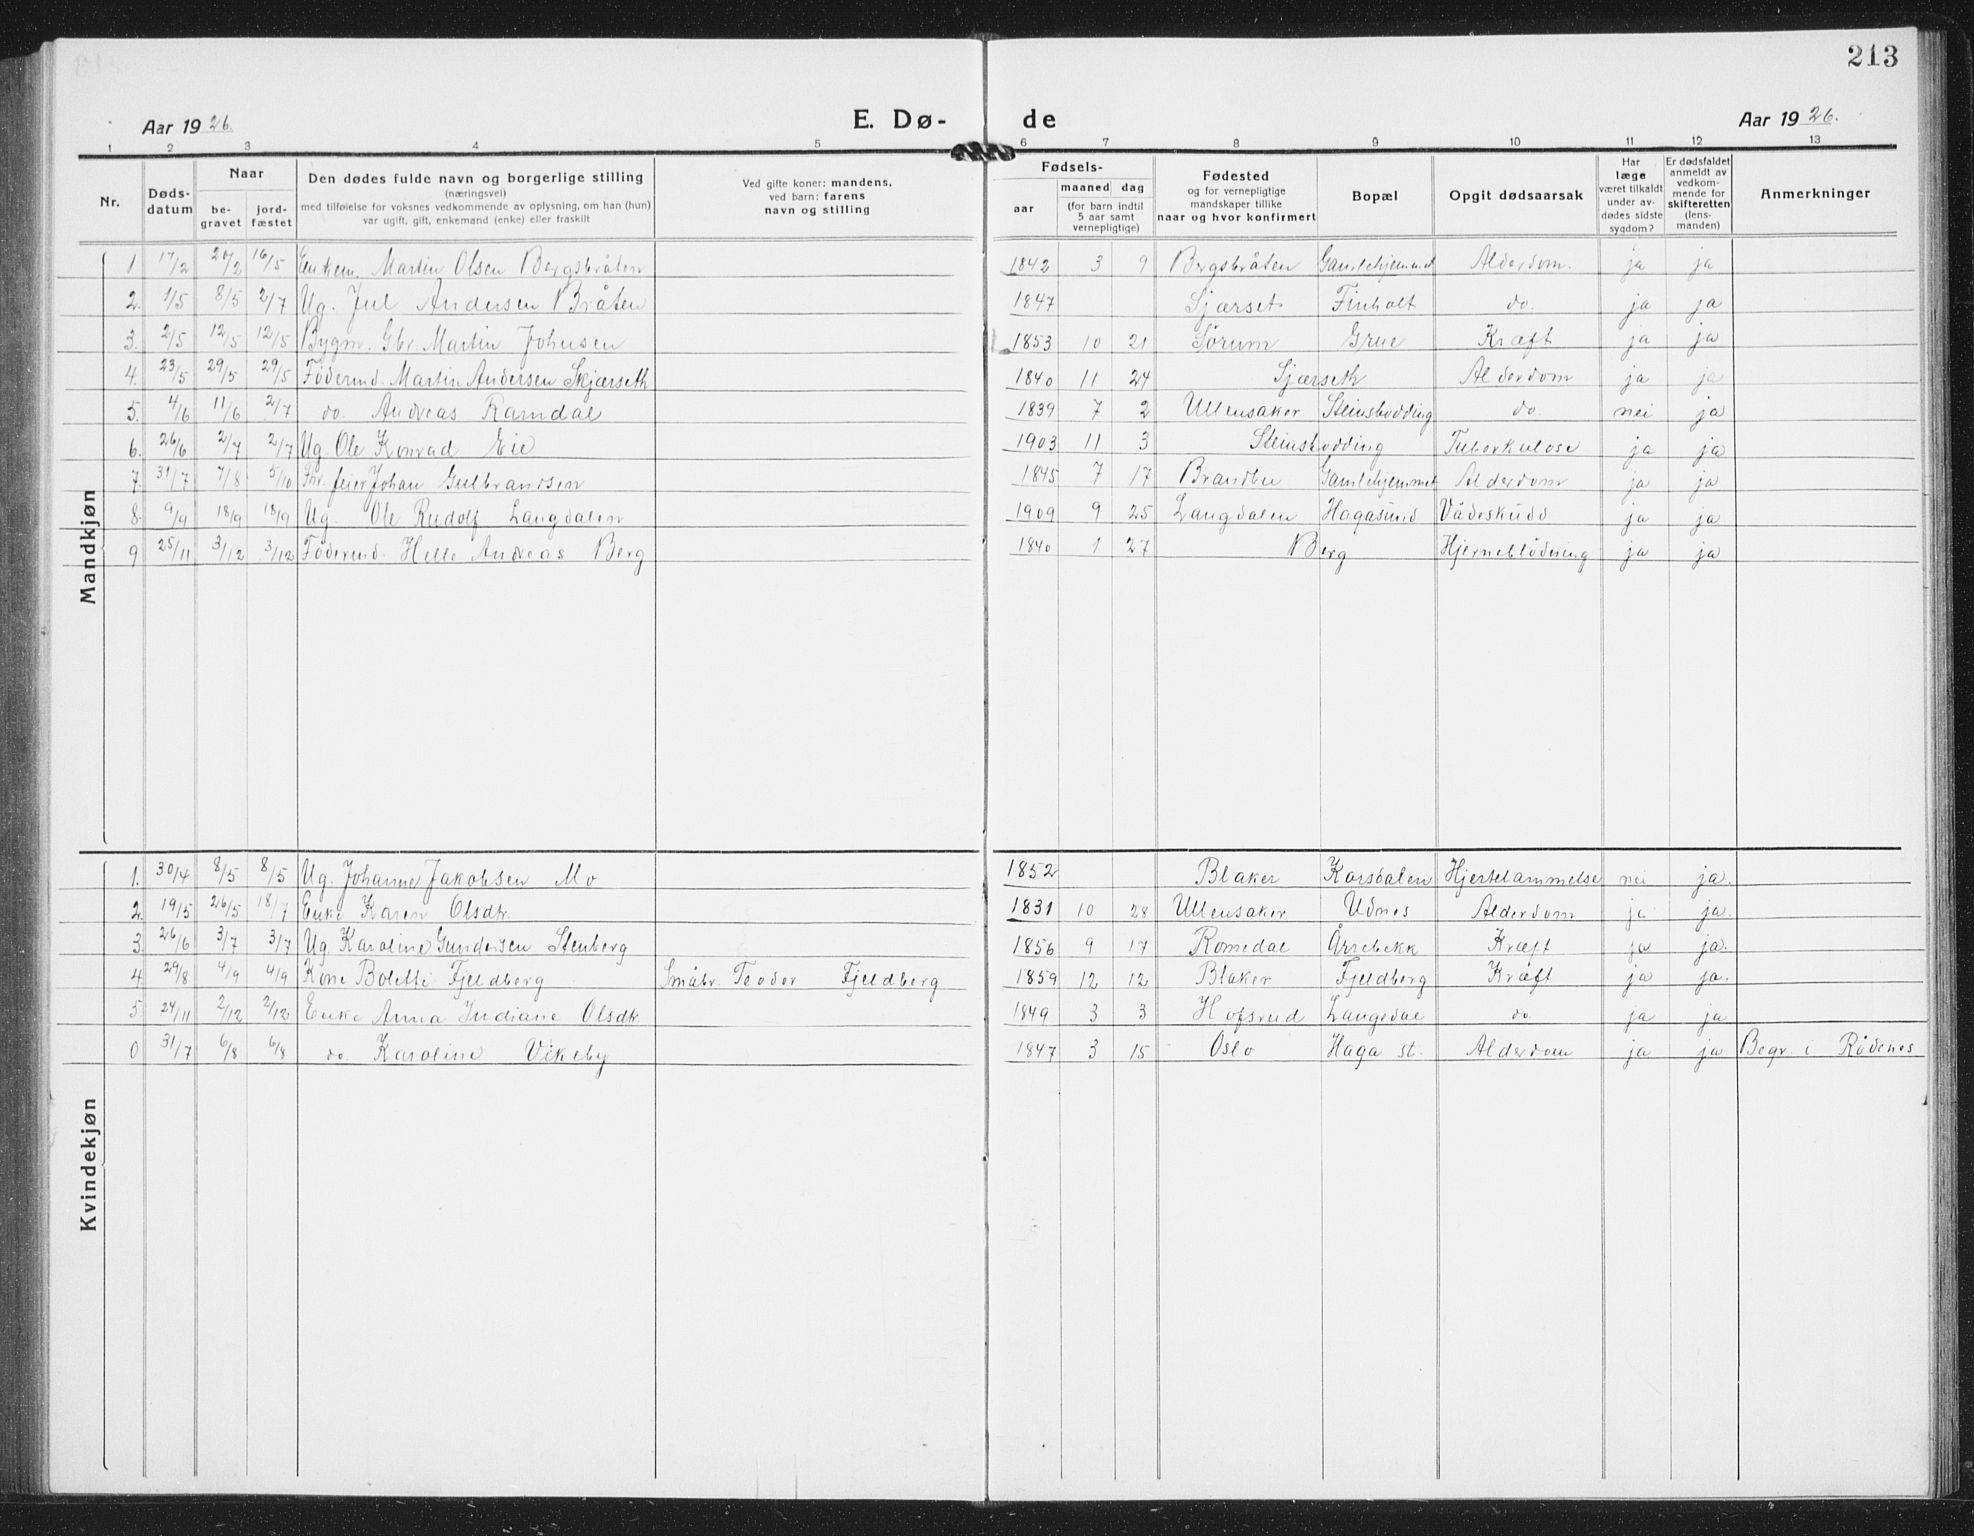 213
Aar 1926. E. Dø- de Aar 1926.
1 2 3 4 5 6 7 8 9 10 11 12 13
Nr. Døds-datum Naar be-gravet jord-fæstet Den dødes fulde navn og borgerlige stilling (næringsvei) med tilføielse for voksnes vedkommende av oplysning, om han (hun) var ugift, gift, enkemand (enke) eller fraskilt Ved gifte koner: mandens, ved barn: farens navn og stilling Fødsels- aar maaned dag (for barn indtil 5 aar samt vernepligtige) Fødested og for vernepligtige mandskaper tillike naar og hvor konfirmert Bopæl Opgit dødsaarsak Har læge været tilkaldt under av-dødes sidste sygdom? Er dødsfaldet anmeldt av vedkom-mende for skifteretten (lens-manden) Anmerkninger
Mandkjøn
1. 17/2 20/2 16/5 Enkem. Martin Olsen Bergsbråten 1842 3 9 Bergsbråten Gamlehjemmet Alderdom. ja ja
2. 1/5 8/5 2/7 Ug. Jul Andersen Bråten 1847 Sjærset Finholt do. ja ja
3. 2/5 12/5 12/5 Bygm. Gbr. Martin Johnsen 1853 10 21 Sørum Grue Kræft ja ja
4. 23/5 29/5 29/5 Fødermd. Martin Andersen Skjærseth 1840 11 24 Sjærseth Alderdom ja ja
5. 4/6 11/6 2/7 do. Andreas Ramdal 1839 7 2 Ullensaker Steinsbodding do. nei ja
6. 26/6 2/7 2/7 Ug. Ole Konrad Eie 1903 11 3 Steinsbodding Tuberkulose ja ja
7. 31/7 7/8 5/10 feier Johan Gulbrandsen 1845 7 17 Brandbu Gamlehjemmet Alderdom ja ja
8. 9/9 18/9 18/9 Ug Ole Rudolf Langdalen 1909 9 25 Langdalen Hagasund Vådeskudd ja ja
9 25/11 3/12 3/12 Fødermd. Helle Andreas Berg 1840 1 27 Berg Hjerneblødning ja ja
Kvindekjøn
1. 30/4 8/5 8/5 Ug. Johanne Jakobsen Mo 1852 Blaker Korsdalen Hjertelammelse nei ja.
2. 19/5 26/5 18/7 Enke Karen Olsdtr. 1831 10 28 Ullensaker Udnes Alderdom ja ja.
3. 26/6 3/7 3/7 Ug Karoline Gundersen Stenberg 1856 9 17 Romedal Årsebekk Kræft ja ja.
4 29/8 4/9 4/9 Kone Bolette Fjeldberg Småbr. Teodor Fjeldberg 1859 12 12 Blaker Fjeldberg Kræft ja ja.
5. 24/11 2/12 2/12 Enke Anna Indiane Olsdtr. 1849 3 3 Hofsrud Langedal do. ja ja
0 31/7 6/8 6/8 do. Karoline Vikeby 1847 3 15 Oslo Haga st. Alderdom ja ja Begr. i Rødenes